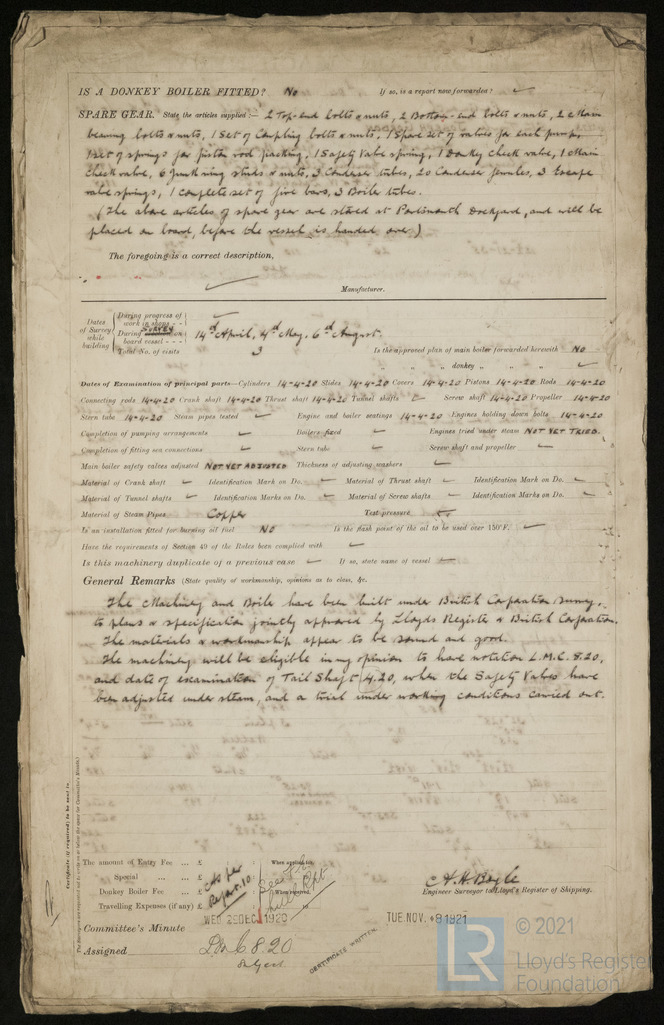 IS A DONKEY BOILER FITTED? No If so, is a report now forwarded? ✓
SPARE GEAR. State the articles supplied:— 2 Top-end bolts & nuts, 2 Bottom-end bolts & nuts, 2 Main
bearing bolts & nuts, 1 Set of Coupling bolts & nuts, 1 Spare set of valves for each pump,
1 set of springs for piston rod packing, 1 Safety Valve spring, 1 Donkey check valve, 1 Main
check valve, 6 Junk ring studs & nuts, 3 Condenser tubes, 20 Condenser ferrules, 3 Escape
valve springs, 1 complete set of fire bars, 3 Boiler tubes.
(The above articles of spare gear are stored at Portsmouth Dockyard, and will be
placed on board, before the vessel is handed over)
The foregoing is a correct description,
✓ Manufacturer.
Dates of Survey while building
During progress of work in shops - -
During SURVEY on board vessel - - -
14th April, 4th May, 6th August.
Total No. of visits 3
Is the approved plan of main boiler forwarded herewith No
" " " donkey " " " ✓
Dates of Examination of principal parts—Cylinders 14-4-20 Slides 14-4-20 Covers 14-4-20 Pistons 14-4-20 Rods 14-4-20
Connecting rods 14-4-20 Crank shaft 14-4-20 Thrust shaft 14-4-20 Tunnel shafts ✓ Screw shaft 14-4-20 Propeller 14-4-20
Stern tube 14-4-20 Steam pipes tested ✓ Engine and boiler seatings 14-4-20 Engines holding down bolts 14-4-20
Completion of pumping arrangements ✓ Boilers fixed ✓ Engines tried under steam NOT YET TRIED.
Completion of fitting sea connections ✓ Stern tube ✓ Screw shaft and propeller ✓
Main boiler safety valves adjusted NOT YET ADJUSTED Thickness of adjusting washers ✓
Material of Crank shaft ✓ Identification Mark on Do. ✓ Material of Thrust shaft ✓ Identification Mark on Do. ✓
Material of Tunnel shafts ✓ Identification Marks on Do. ✓ Material of Screw shafts ✓ Identification Marks on Do. ✓
Material of Steam Pipes Copper Test pressure ✓
Is an installation fitted for burning oil fuel No Is the flash point of the oil to be used over 150°F. ✓
Have the requirements of Section 49 of the Rules been complied with ✓
Is this machinery duplicate of a previous case ✓ If so, state name of vessel ✓
General Remarks (State quality of workmanship, opinions as to class, &c.
The Machinery and Boiler have been built under British Corporation Survey,
to plans & specification jointly approved by Lloyds Register & British Corporation.
The materials & workmanship appear to be sound and good.
The machinery will be eligible in my opinion to have notation L.M.C. 8.20,
and date of examination of Tail Shaft 4.20, when the Safety Valves have
been adjusted under steam, and a trial under working conditions carried out.
Certificate (if required) to be sent to
The amount of Entry Fee ... £ When applied for,
Special ... ... £
Donkey Boiler Fee ... £ When received,
Travelling Expenses (if any) £
As per
Report 10
See
Rpt
A. H. Boyle
Engineer Surveyor to Lloyd's Register of Shipping.
Committee's Minute WED 29 DEC 1920 TUE. NOV. 8 1921
Assigned 6 8.20
Subject
CERTIFICATE WRITTEN.
LR
© 2021
Lloyd's Register
Foundation